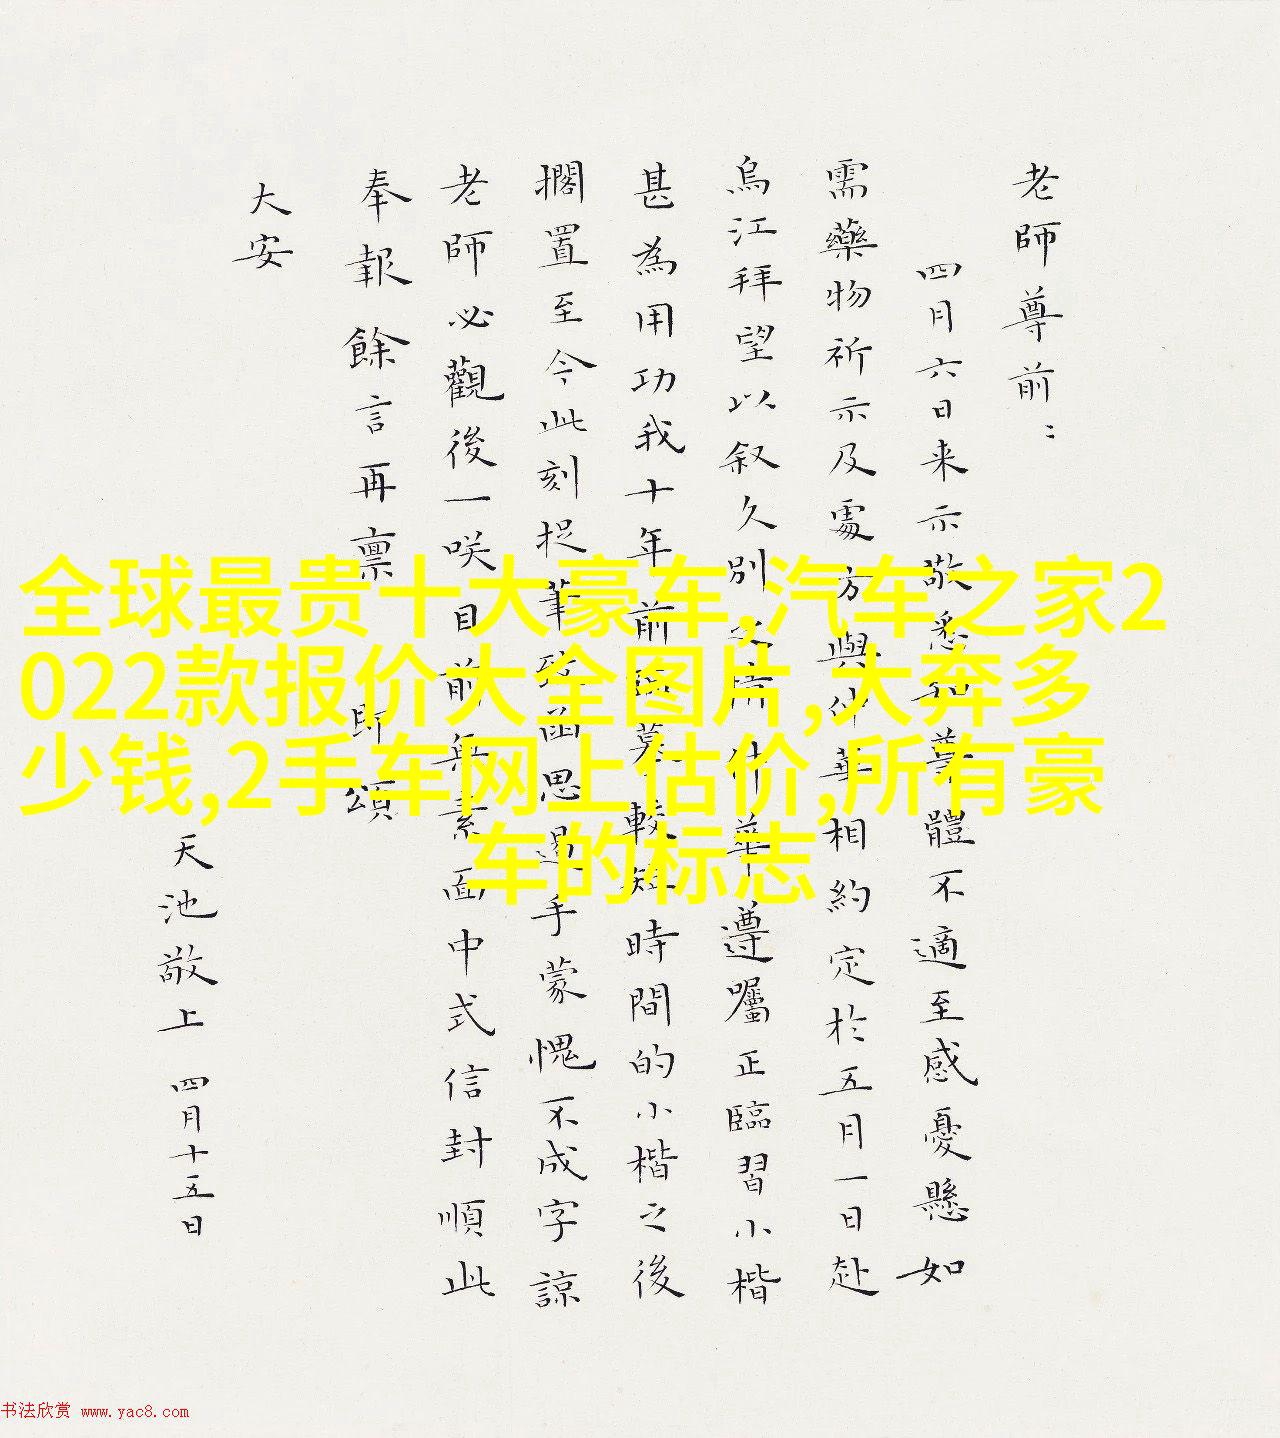 老師尊前：
四月六日来示敬悉知尊體不適至感憂懸如
需藥物祈示及處方與仲華相約定於五月一日赴
烏江拜望以叙久別之情仲華遵囑正臨習小楷
甚為用功我十年前臨摹較短時間的小楷之後
擱置至今此刻捉筆致函思過手蒙愧不成字諒
老師必觀後一咲目前無素面中式信封順此
奉報餘言再禀 即頌
大安
天池敬上 四月十五日
全球最贵十大豪车,汽车之家2
022款报价大全图片,大奔多
少钱,2手车网上估价,所有豪
车的标志
书法欣赏 www.yac8.com